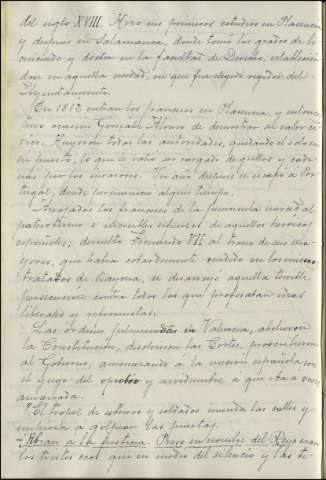 del siglo XVIII. Hizo sus primeros estudios en Plasencia
y después en Salamanca, donde tomó los grados de li-
cenciado y doctor en la facultad de Derecho, establecién-
dose en aquella ciudad, en que fue elegido regidor del
Ayuntamiento.
En 1812 entran los franceses en Plasencia, y entonces
tuvo ocasión González Alonso de demostrar el valor cí-
vico. Huyeron todas las autoridades, quedando él solo en
su puesto, lo que le valió ser cargado de grillos y cade-
nas por los invasores. Un año después se escapó a Por-
tugal, donde permaneció algún tiempo.
Arrojados los franceses de la península merced al
patriotismo e esfuerzos de aquellos heroicos
españoles, devuelto Fernando VII al trono de sus ma-
yores, que había cobardemente vendido en los
tratados de Bayona, se desarrojó aquella terrible
persecución contra todos los que profesaban ideas
liberales y reformistas.
Las órdenes fulminadas en Valencia, abolieron
la Constitución, disolvieron las Cortes, proscribieron
al Gobierno, amenazando a la nación española con
el yugo del oprobio y servidumbre a que iba a verse
amarrada.
"El tropel de esbirros y soldados inunda las calles y
empieza a golpear las puertas.
—Abran a la justicia. Preso en nombre del Rey: eran
los tristes ecos que en medio del silencio y las ti-